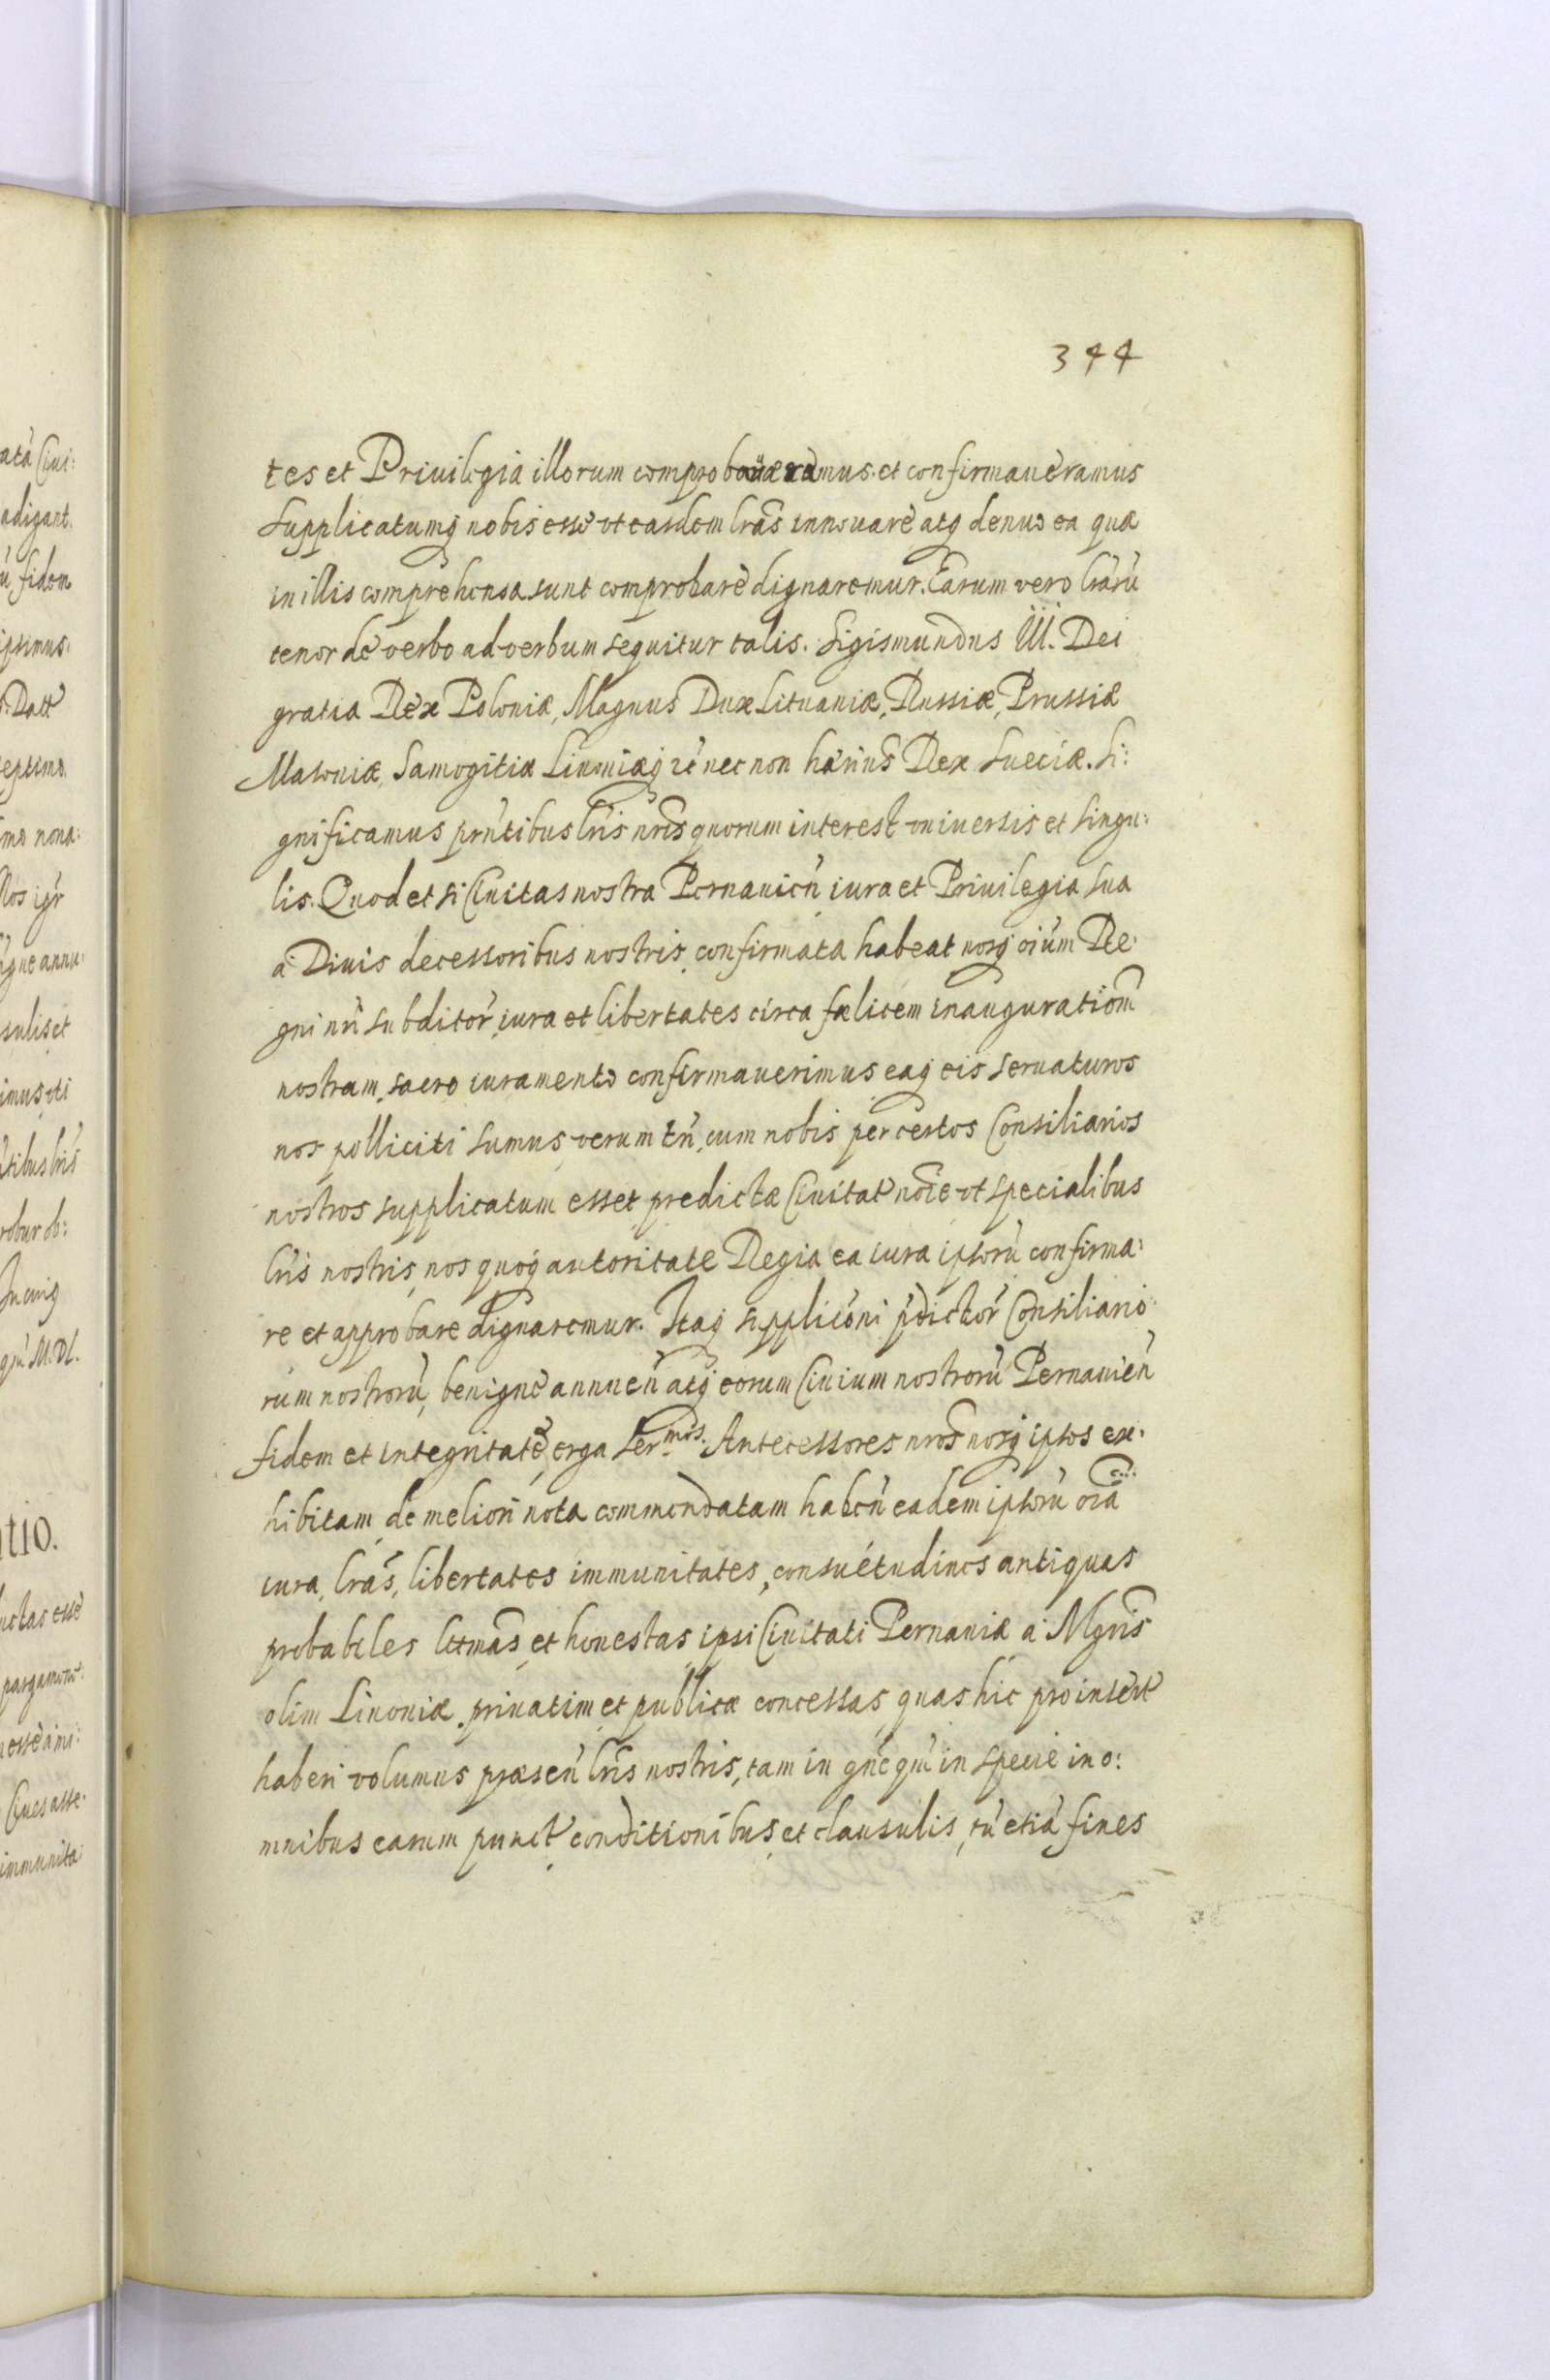 344
tes et Priuilegia illorum comprobaueramus et confirmaueramus
supplicatumq nobis esse vt easdem lrās innouare atq denuo ea quæ
in illis comprehensa sunt comprobare dignaremur. Earum vero lrārū
tenor de verbo ad verbum sequitur talis. Sigismundus III. Dei
gratia Rex Poloniæ, Magnus Dux Lituaniæ, Russiæ, Prussiæ
Masouiæ, Samogitiæ Liuoniæq nec non Rex Sueciæ. Si:
gnificamus prn̄tibus lrīs nrīs quorum interest vniuersis et singu:
lis. Quod et si Ciuitas nostra Pernauien̄ iura et Priuilegia sua
a Diuis decessoribus nostris confirmata habeat nosq oīum Re:
gni nrī subditor̄ iura et libertates circa fælicem inauguratiōm
nostram, sacro iuramento confirmauerimus eaq eis seruaturos
nos polliciti sumus, verum tn̄, cum nobis per certos Consiliarios
nostros supplicatum esset prædictæ Ciuitat noīe vt specialibus
lrīs nostris, nos quoq autoritate Regia ea iura ipsorū confirma:
re et approbare dignaremur. Itaq supplicōni p̄dictor̄ Consiliario
rum nostrorū, benigne annuen̄ atq eorum Ciuium nostrorū Pernauien̄
fidem et integritatē, erga Ser:mos. Antecessores nrōs nosq ipsos ex:
hibitam, de meliori nota commendatam haben̄ eadem ipsorū oīa
iura, lrās, libertates immunitates, consuetudines antiquas
probabiles letmās et honestas, ipsi Ciuitati Pernauiæ a Mgrīs
olim Liuoniæ, priuatim et publicæ concessas, quas hic pro insert
haberi volumus præsen̄ lrīs nostris, tam in gn̄e qm̄ in specie in o:
mnibus earum punct conditionibus, et clausulis, tū etiā fines